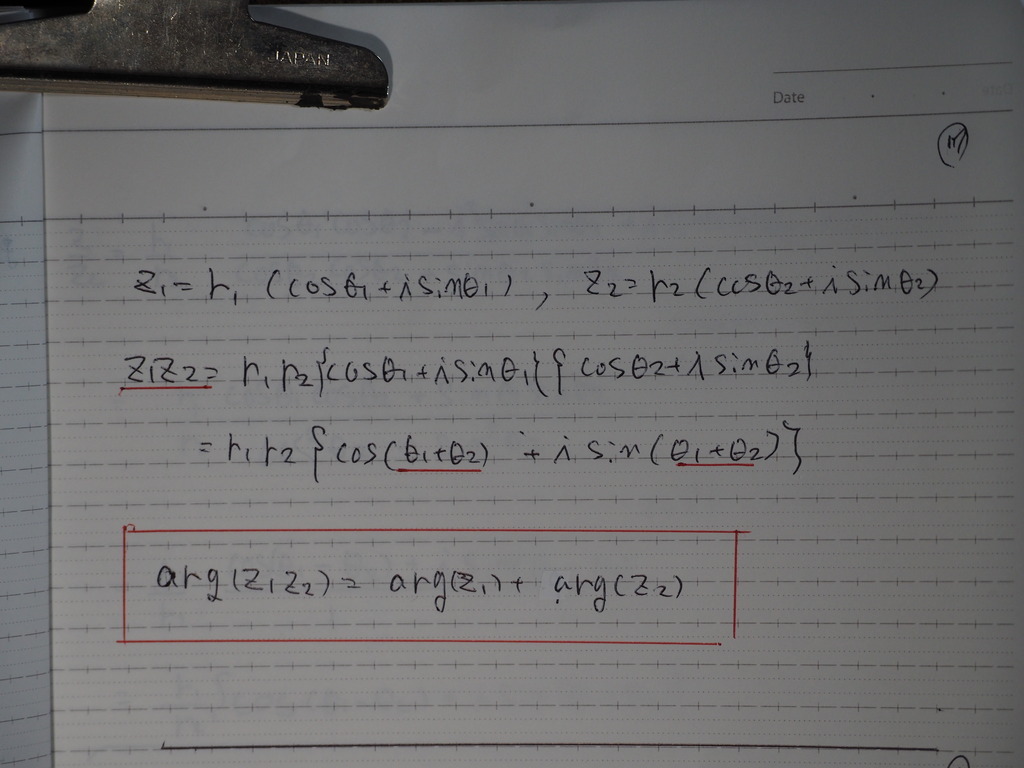 JAPAN
Date
z₁ = r₁ (cosθ₁ + i sinθ₁), z₂ = r₂ (cosθ₂ + i sinθ₂)
z₁z₂ = r₁r₂{cosθ₁ + i sinθ₁}{cosθ₂ + i sinθ₂}
= r₁r₂{cos(θ₁+θ₂) + i sin(θ₁+θ₂)}
arg(z₁z₂) = arg(z₁) + arg(z₂)